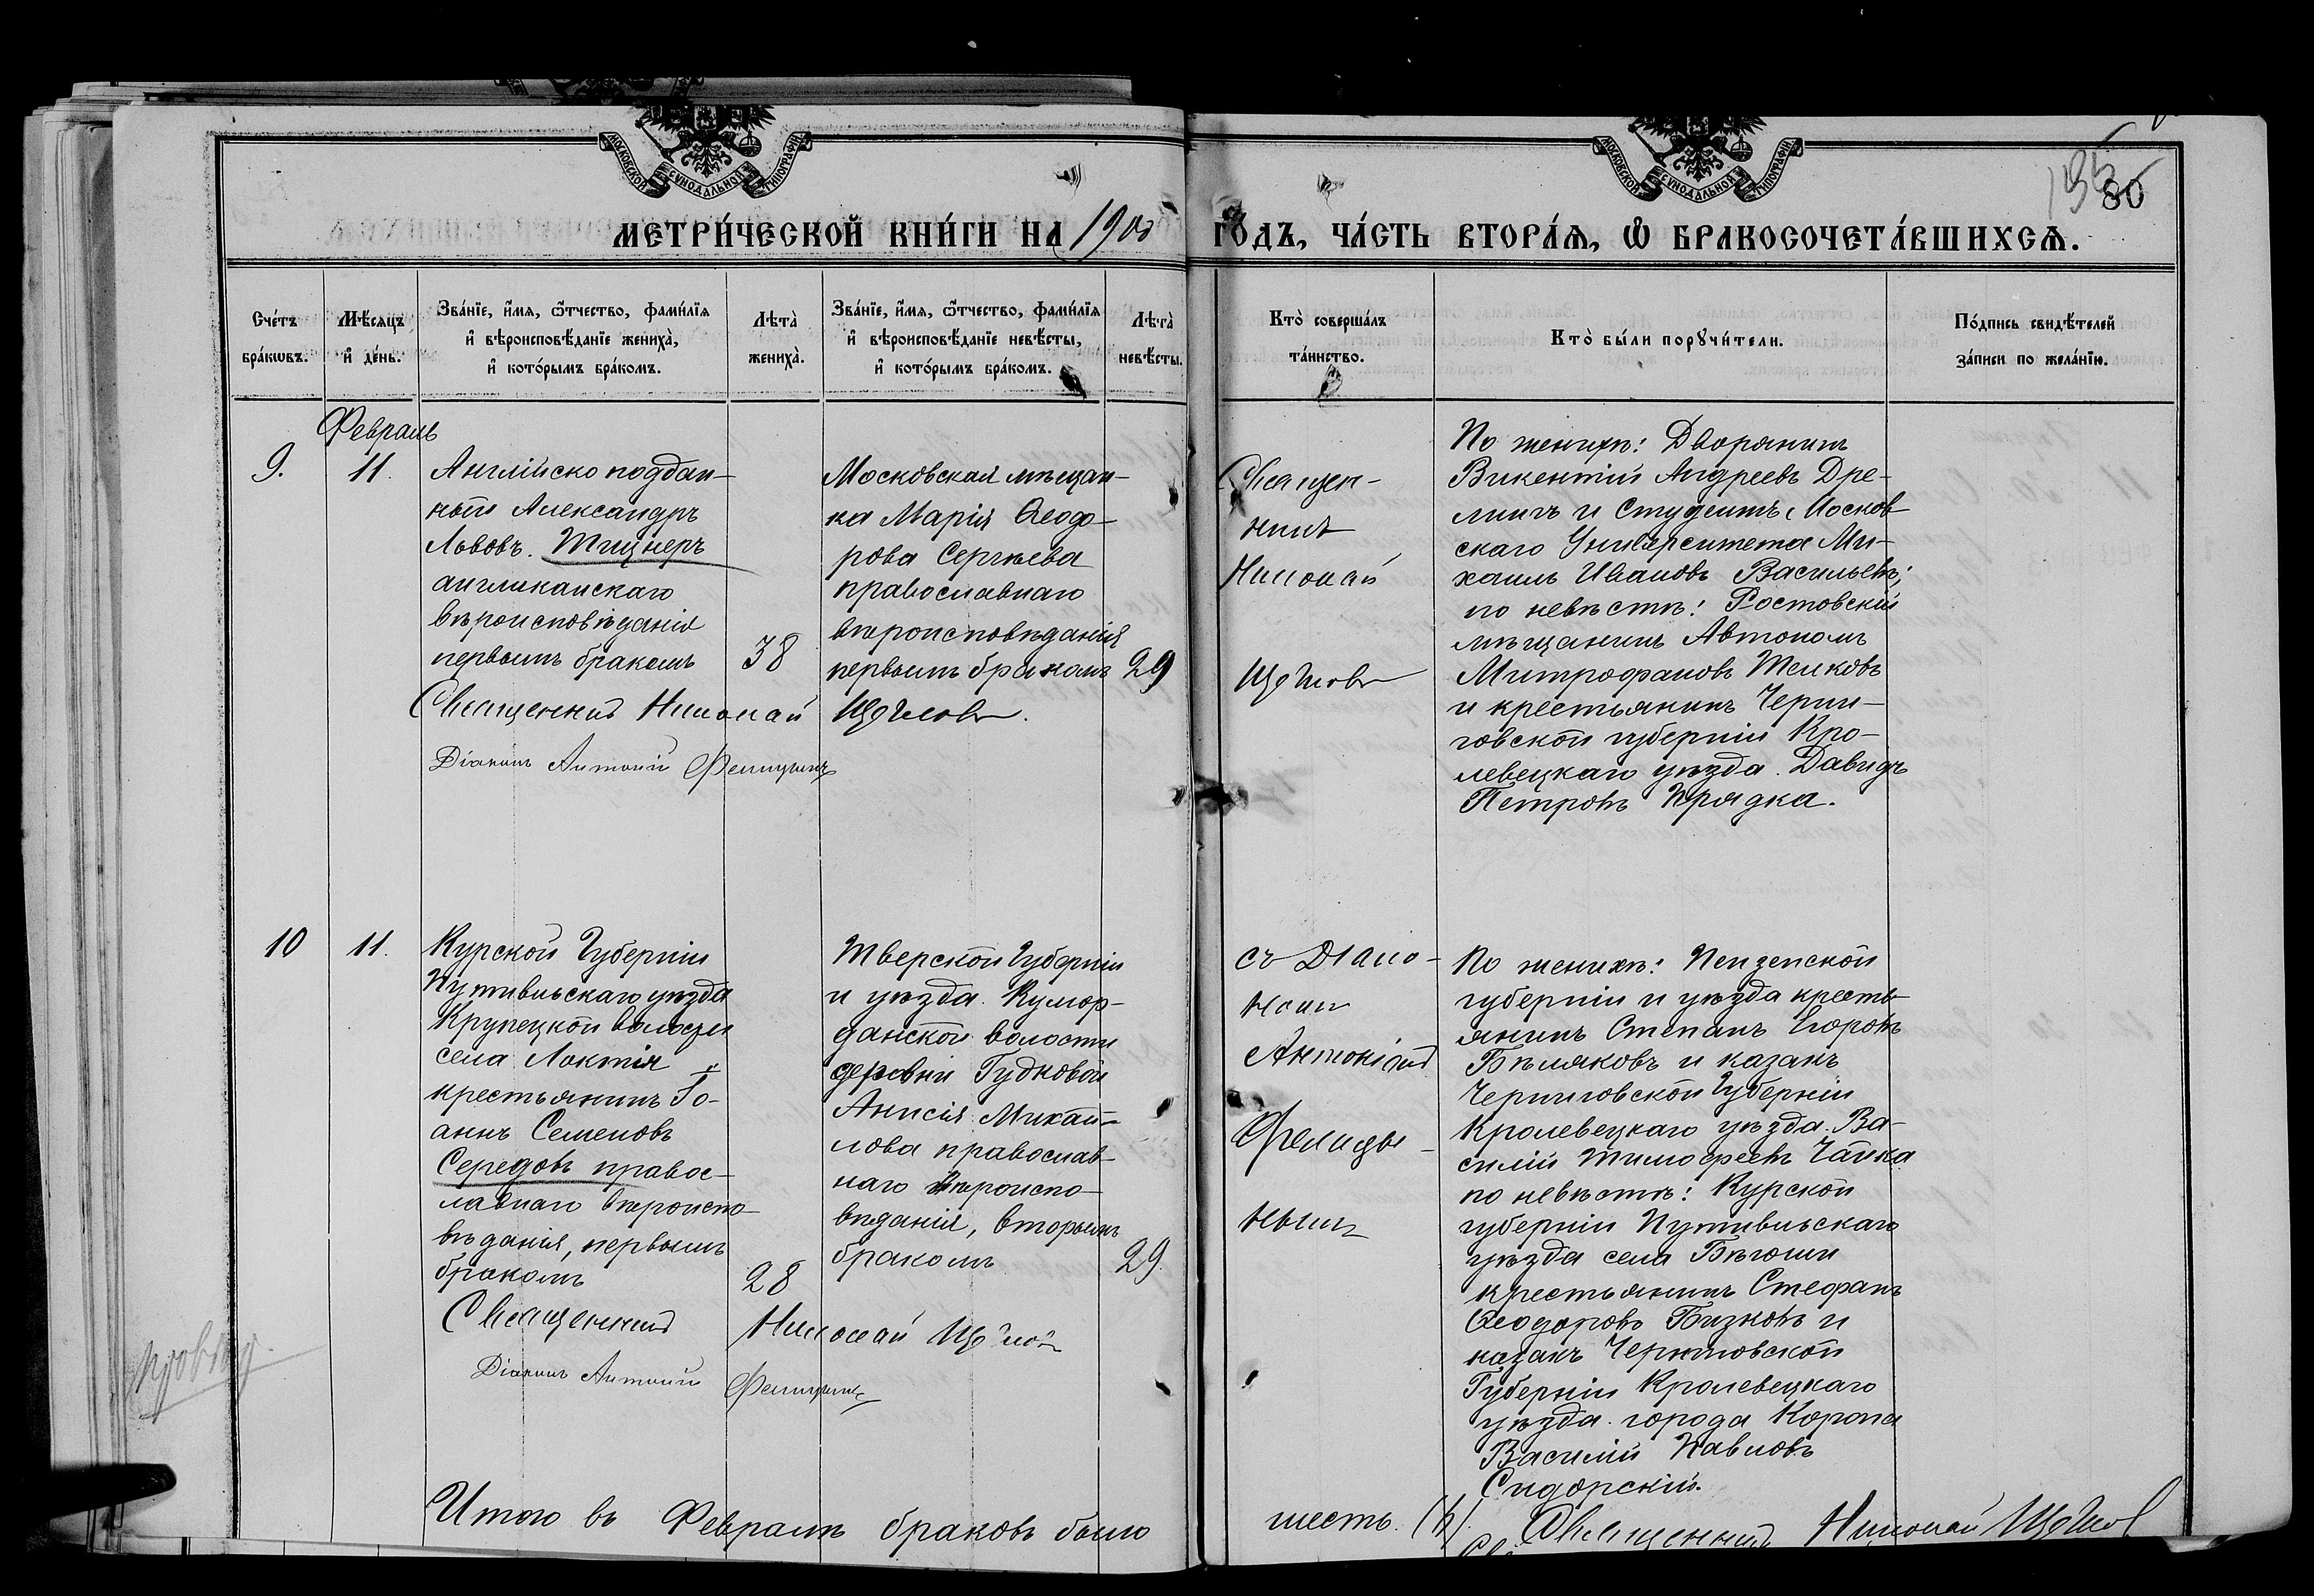 МОСКОВСКОЙ СѴНОДАЛЬНОЙ ТИПОГРАФІИ
МОСКОВСКОЙ СѴНОДАЛЬНОЙ ТИПОГРАФІИ
80
МЕТРИ́ЧЕСКОЙ КНИ́ГИ НА 1900 ГО́ДЪ, ЧА́СТЬ ВТОРА́Ѧ, Ѿ БРАКОСОЧЕТА́ВШИХСѦ.
Сче́тъ
бра́кѡвъ.
Мѣ́сѧцъ
и҆ де́нь.
Зва́нїе, и҆́мѧ, ѻ҆́тчество, фами́лїѧ
и҆ вѣроисповѣ́данїе жениха̀,
и҆ кото́рымъ бра́комъ.
Лѣта̀
жениха̀.
Зва́нїе, и҆́мѧ, ѻ҆́тчество, фами́лїѧ
и҆ вѣроисповѣ́данїе невѣ́сты,
и҆ кото́рымъ бра́комъ.
Лѣта̀
невѣ́сты.
Кто̀ соверша́лъ
та́инство.
Кто̀ бы́ли порꙋчи́тели.
По́дпись свидѣ́телей
за́писи по жела́нїю.
Февраль
9.
11.
Англійско поддан-
ный Александръ
Львовъ. Тицнеръ
англиканскаго
вѣроисповѣданія
первымъ бракомъ
38
Московская мѣщан-
ка Марія Ѳеодо-
рова Сергѣева
православнаго
вѣроисповѣданія
первымъ бракомъ
29
Священникъ Николай
Діаконъ Антоній Фелицынъ
Священ-
никъ
Николай
По женихѣ: Дворянинъ
Викентій Андреевъ Дре-
лингъ и Студентъ Москов-
скаго Университета Ми-
хаилъ Ивановъ Васильевъ;
по невѣстѣ: Ростовскій
мѣщанинъ Автономъ
Митрофановъ Телковъ
и крестьянинъ Черни-
говской губерніи Кро-
левецкаго уѣзда. Давидъ
Петровъ Прядка.
10
11.
Курской Губерніи
Путивльскаго уѣзда
Крупецкой волости
села Локтія
крестьянинъ Іо-
аннъ Семеновъ
Середовъ правос-
лавнаго вѣроиспо-
вѣданія, первымъ
бракомъ
28
Тверской Губерніи
и уѣзда. Кумор-
данской волости
деревни Гудковой
Анисія Михай-
лова православ-
наго вѣроиспо-
вѣданія, вторымъ
бракомъ
29.
Священникъ Николай
Діаконъ Антоній Фелицынъ
съ Діако-
номъ
Антоніемъ
Фелицы-
нымъ
По женихѣ: Пензенской
губерніи и уѣзда кресть-
янинъ Степанъ Егоровъ
Бѣляковъ и казакъ
Черниговской Губерніи
Кролевецкаго уѣзда. Ва-
силій Тимофеевъ Чайка
по невѣстѣ: Курской
губерніи Путивльскаго
уѣзда села Бѣгоши
крестьянинъ Стефанъ
Ѳеодоровъ Бизковъ и
казакъ Черниговской
Губерніи Кролевецкаго
уѣзда. города Коропа
Василій Павловъ
Сидорскій.
Итого въ Февралѣ браковъ было шесть.
Священникъ Николай